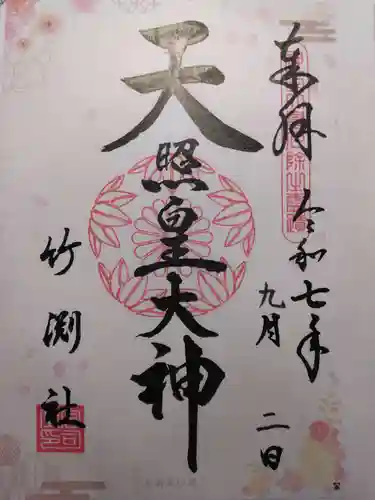 奉拝
令和七年
九月
二日
天照皇大神
竹渕社